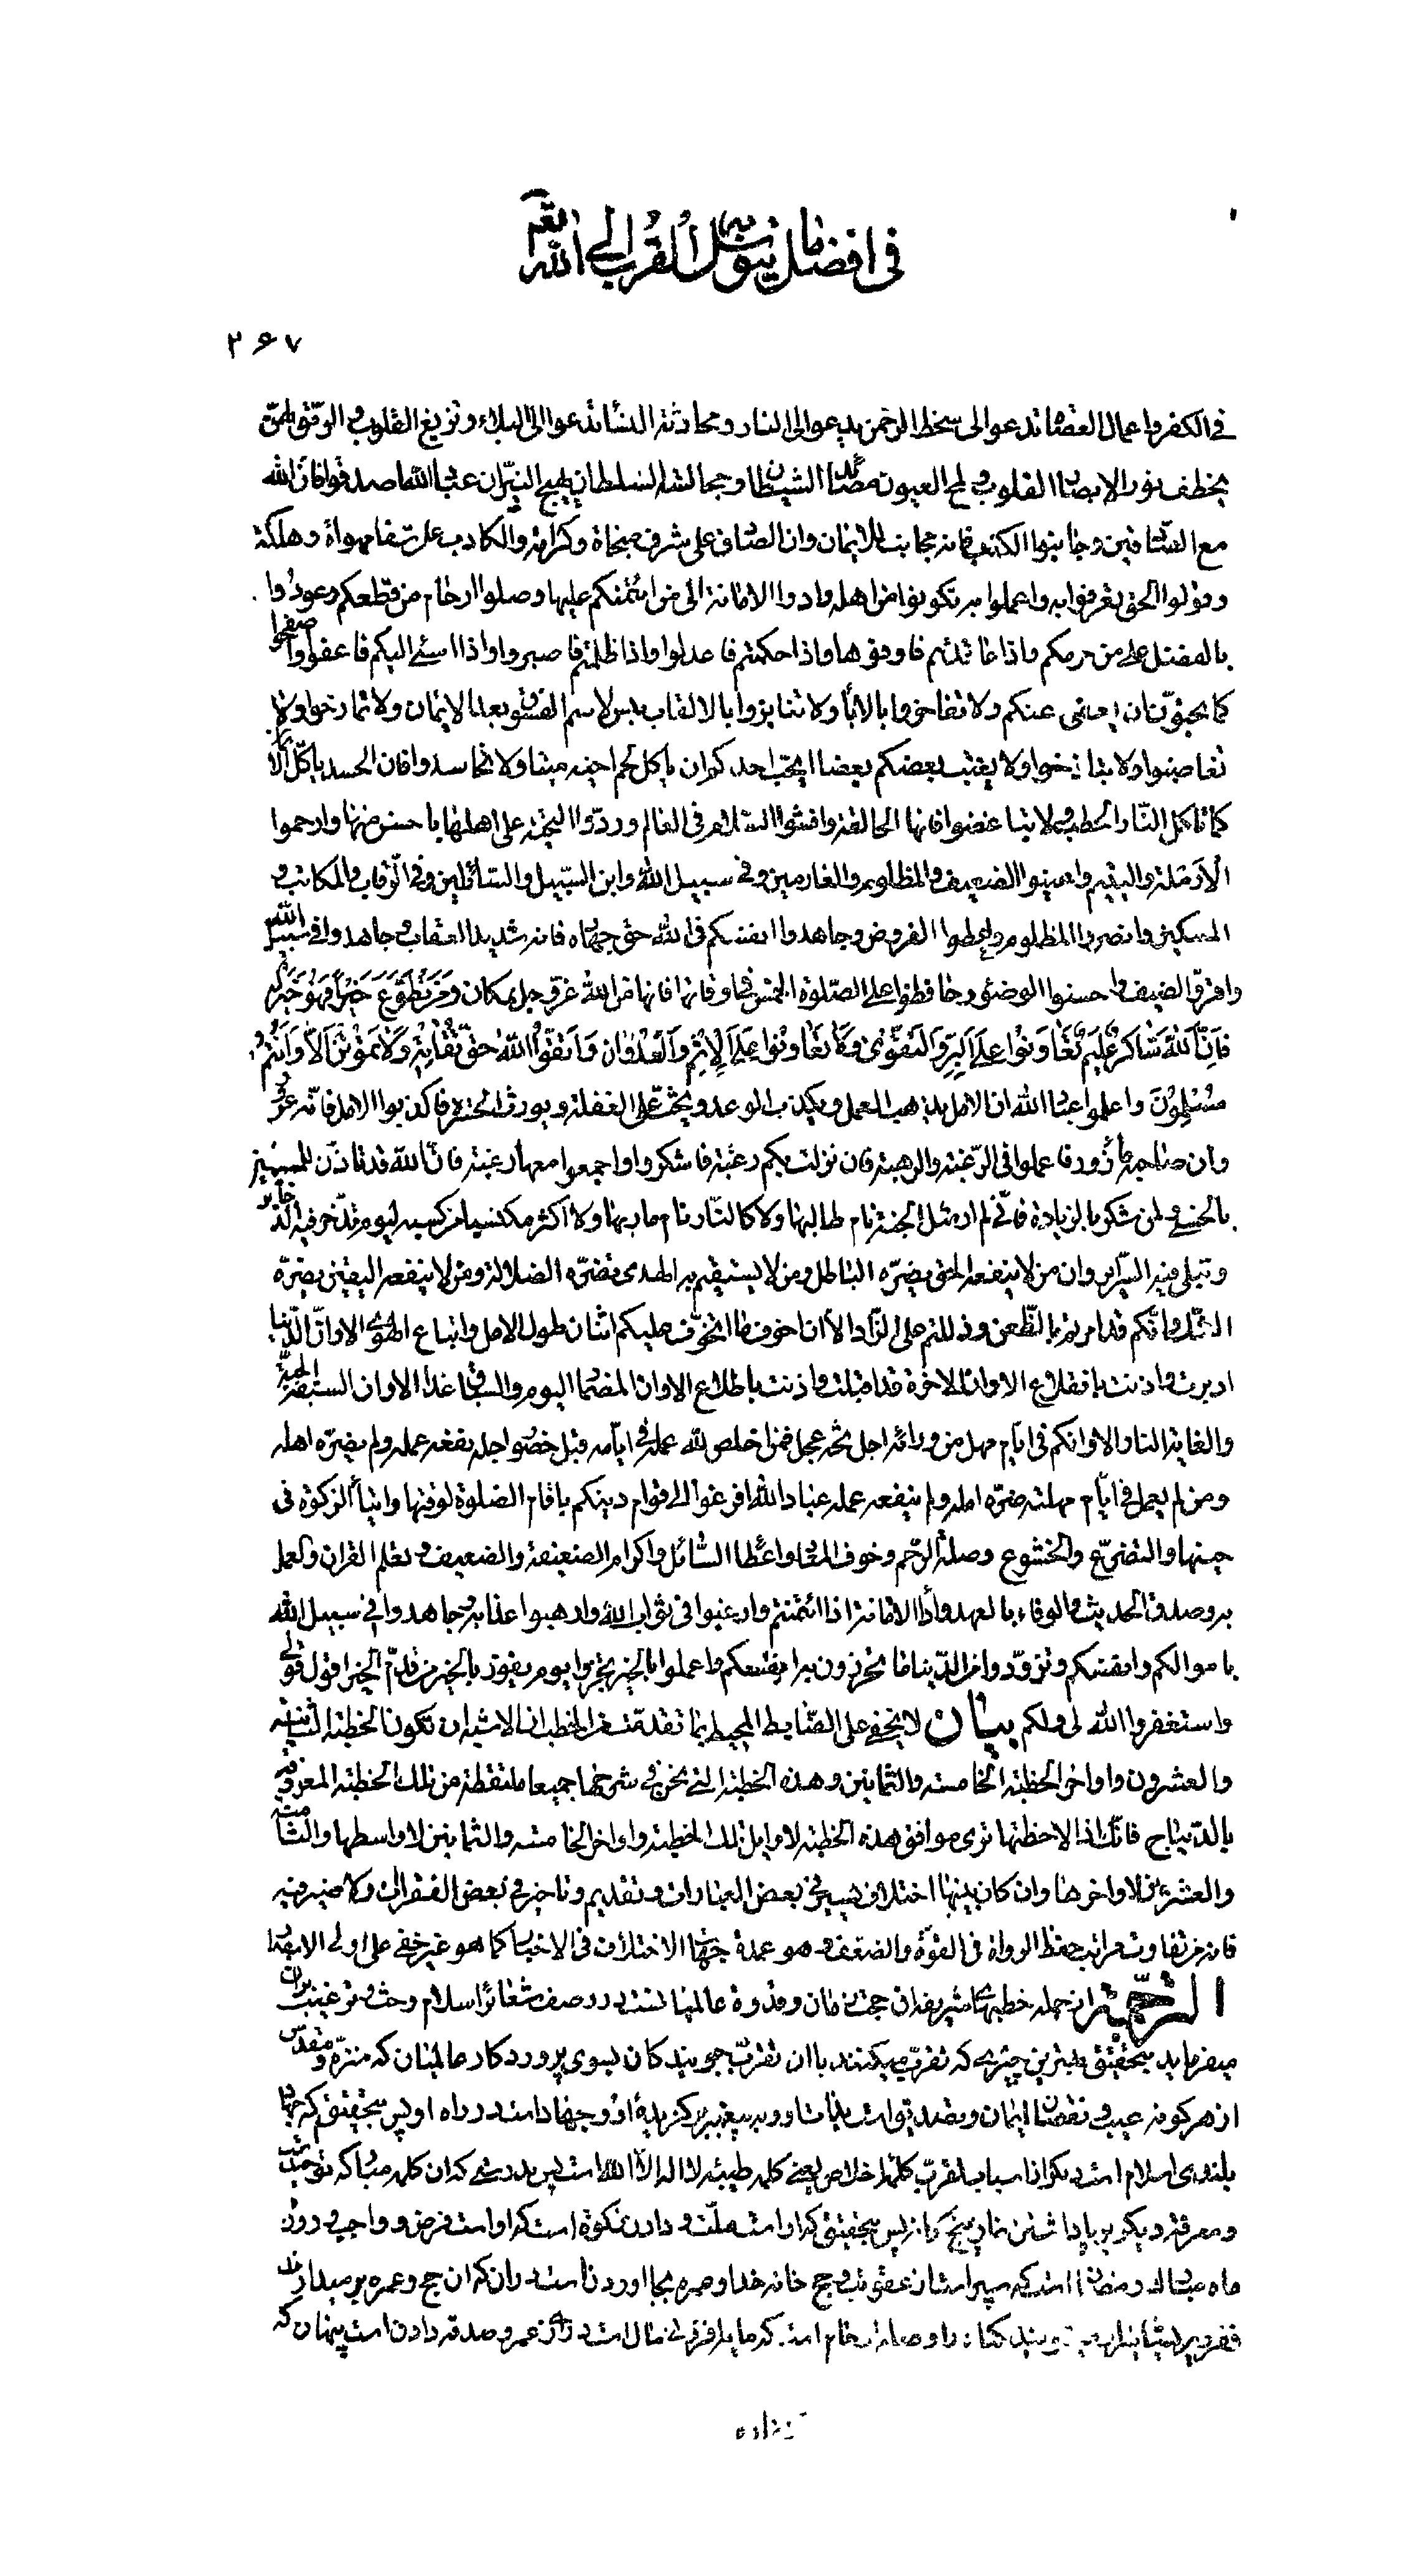 في افضل ما يتوسل به القرب الى الله تعالى
۲۶۷
في الكفر واعمال العصاة تدعو الى سخط الرحمن يدعو الى النار ومحادثة النساء تدعو الى البلاء وتزيغ القلوب والرمق لهن
يخطف نور الابصار القلوب ولمح العيون مصائد الشيطان ومجالسة السلطان يهيج النيران عباد الله اصدقوا فان الله
مع الصادقين وجانبوا الكذب فانه مجانب للايمان وان الصادق على شرف منجاة وكرامة والكاذب على شفا مهواة وهلكة
وقولوا الحق تعرفوا به واعملوا به تكونوا من اهله وادوا الامانة الى من ائتمنكم عليها وصلوا ارحام من قطعكم وعودوا
بالفضل على من حرمكم واذا عاقدتم فاوفوها واذا حكمتم فاعدلوا واذا ظلمتم فاصبروا واذا اسئ اليكم فاعفوا واصفحوا
كما تحبون ان يعفى عنكم ولا تفاخروا بالاباء ولا تنابزوا بالالقاب بئس الاسم الفسوق بعد الايمان ولا تمازحوا ولا
تغاضبوا ولا تباذخوا ولا يغتب بعضكم بعضا ايحب احدكم ان ياكل لحم اخيه ميتا ولا تحاسدوا فان الحسد ياكل الايمان
كما تاكل النار الحطب ولا تباغضوا فانها الحالقة وافشوا السلام في العالم وردوا التحية على اهلها باحسن منها وارحموا
الارملة واليتيم واعينوا الضعيف والمظلوم والغارمين وفي سبيل الله وابن السبيل والسائلين وفي الرقاب والمكاتب و
المسكين وانصروا المظلوم واعطوا الفروض وجاهدوا انفسكم في الله حق جهاده فانه شديد العقاب وجاهدوا في سبيل الله
واقروا الضيف واحسنوا الوضوء وحافظوا على الصلوة الخمس في اوقاتها فانها من الله عز وجل بمكان ومن تطوع خيرا فهو خير له
فان الله شاكر عليم تعاونوا على البر والتقوى ولا تعاونوا على الاثم والعدوان واتقوا الله حق تقاته ولا تموتن الا وانتم
مسلمون واعلموا عباد الله ان الامل يذهب العمل ويكذب الوعد ويحث على الغفلة ويورث الحسرة فاكذبوا الامل فانه غرور
وان صاحبه مازور فاعملوا في الرغبة والرهبة فان نزلت بكم رغبة فاشكروا واجمعوا معها رغبة فان الله قد تاذن للمسلمين
بالحسنى ولمن شكر بالزيادة فاني لم ار مثل الجنة نام طالبها ولا كالنار نام هاربها ولا اكثر مكتسبا من كسبه ليوم تدخر فيه الذخائر
وتبلى فيه السرائر وان من لا ينفعه الحق يضره الباطل ومن لا يستقيم به الهدى تضره الضلالة ومن لا ينفعه اليقين يضره
الشك وانكم قد امرتم بالظعن ودللتم على الزاد الا ان اخوف ما اتخوف عليكم اثنان طول الامل واتباع الهوى الا وان الدنيا
ادبرت واذنت بانقلاع الا وان الاخرة قد اقبلت واذنت باطلاع الا وان المضمار اليوم والسباق غدا الا وان السبقة الجنة
والغاية النار الا وانكم في ايام مهل من ورائه اجل يحثه عجل فمن اخلص لله عمله في ايامه قبل حضور اجله نفعه عمله ولم يضره امله
ومن لم يعمل في ايام مهلته ضره امله ولم ينفعه عمله عباد الله افزعوا الى قوام دينكم باقام الصلوة لوقتها وايتاء الزكوة في
حينها والتضرع والخشوع وصلة الرحم وخوف المعاد واعطاء السائل واكرام الضعيفة والضعيف وتعلم القران والعمل
به وصدق الحديث والوفاء بالعهد واداء الامانة اذا ائتمنتم وارغبوا في ثواب الله وارهبوا عذابه وجاهدوا في سبيل الله
باموالكم وانفسكم وتزودوا من الدنيا ما تحرزون به انفسكم واعملوا بالخير تجزوا يوم يفوز بالخير من قدم الخير اقول قولي
واستغفروا الله لي ولكم بيان لا يخفى على الضابط المحيط بما تقدمت من الخطب ان الاشبه ان تكون الخطبة الثامنة
والعشرون واواخر الخطبة الخامسة والثمانين وهذه الخطبة التي نحن في شرحها جميعا ملتقطة من تلك الخطبة المعروفة
بالديباج فانك اذا لاحظتها ترى موافق هذه الخطبة لاوايل تلك الخطبة واواخر الخامسة والثمانين لاواسطها والثامنة
والعشرين لاواخرها وان كان بينها اختلاف يسير في بعض العبارات وتقديم وتاخير في بعض الفقرات ولا ضير فيه
فانه من تفاوت مراتب حفظ الرواة في القوة والضعف وهو عمدة جهات الاختلاف في الاخبار كما هو غير خفي على اولى الابصار
الترجمة از جمله خطبهاى شريفه ان حجت زمان وقدوة عالميانست در وصف شعائر اسلام وحث وترغيب بران
ميفرمايد بتحقيق بهترين چيزى كه تقرب ميكنند با ان تقرب جويندكان بسوى پروردكار عالميان كه منزه ومقدس
از هر كونه عيب ونقصان ايمان وتصديق است بذات او وبه پيغمبر بركزيدهٔ او وجهاد است در راه او پس بتحقيق كه جهاد
بلندى اسلام است ديكر از اسباب تقرب كلمهٔ اخلاص يعنى كلمه طيبه لا اله الا الله است پس بدرستى كه ان كلمه مباركه توحيد است
ومعرفة ديكر برپا داشتن نماز پنج كانه پس بتحقيق كه او است ملت ودادن زكوة است كه او است فرض وواجب وروزه
ماه مبارك رمضان است كه سپر است از عقوبت وحج خانه خدا وعمره بجا اوردنست در ان كه ان حج وعمره برميدارند
فقر وپريشانيرا وميشويند كناه را وصله ارحام است كه مايه افزونى مال است ودرازى عمر وصدقه دادن است پنهان كه